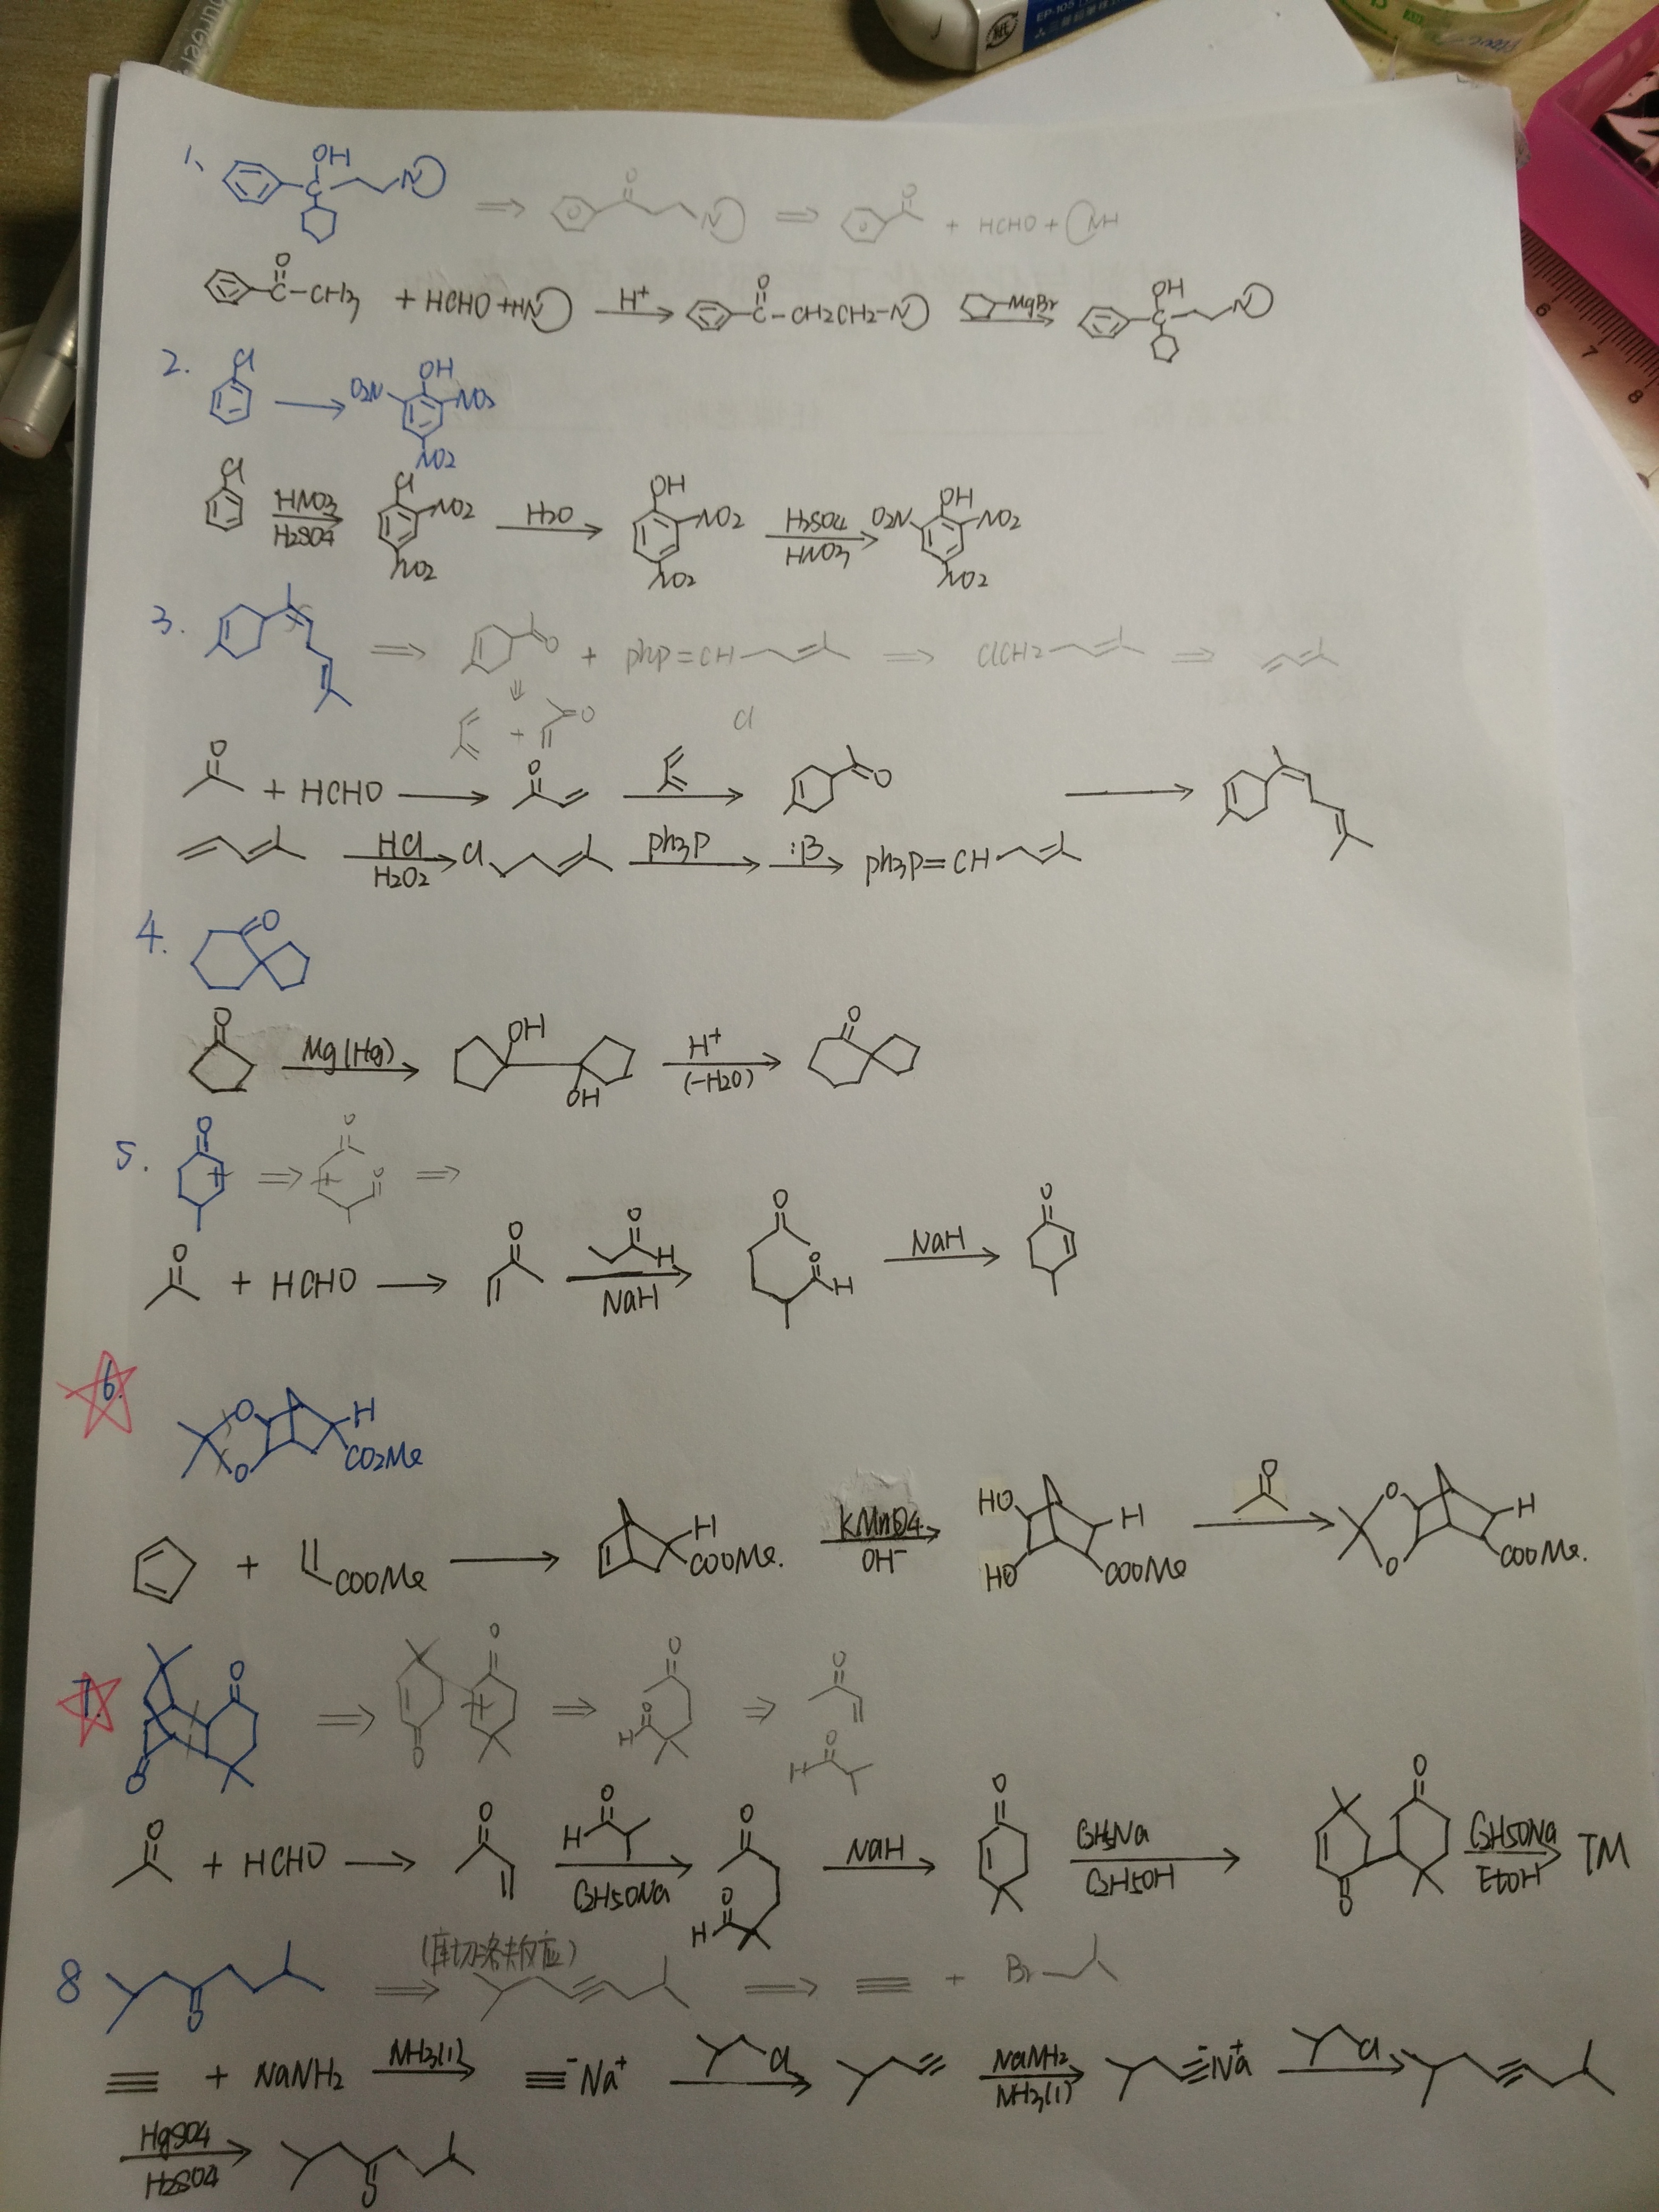 EP-105
6 7 8
1、 OH C N ⇒ O N ⇒ O + HCHO + NH
O C-CH3 + HCHO + HN H+ → O C-CH2CH2-N MgBr → OH C N
2. Cl → OH O2N NO2 NO2
Cl HNO3 H2SO4 → Cl NO2 NO2 H2O → OH NO2 NO2 H2SO4 HNO3 → O2N OH NO2 NO2
3. ⇒ O + php=CH ⇒ ClCH2 ⇒
+ O Cl
O + HCHO → O → O →
HCl H2O2 → Cl ph3P → :B → ph3P=CH
4. O
O Mg(Hg) → OH OH H+ (-H2O) → O
5. O ⇒ O O ⇒
O + HCHO → O O H NaH → O O H NaH → O
6. O O H CO2Me
+ COOMe → H COOMe. KMnO4 OH- → HO HO H COOMe O → O O H COOMe.
7. O O ⇒ O O ⇒ O H O ⇒ O H O
O + HCHO → O H O C2H5ONa → O H O NaH → O C2H5Na C2H5OH → O O C2H5ONa EtOH → TM
8 O ⇒ (库切洛夫反应) ⇒ ≡ + Br
≡ + NaNH2 NH3(l) → ≡- Na+ Cl → NaNH2 NH3(l) → ≡- Na+ Cl →
HgSO4 H2SO4 → O